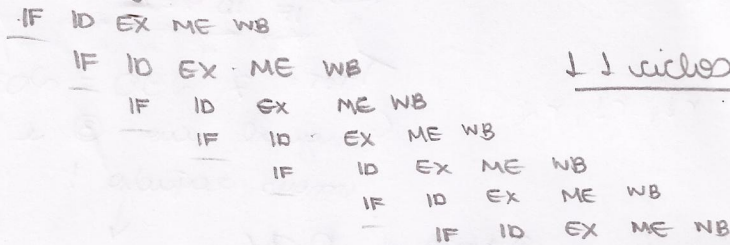 IF ID EX ME WB
IF ID EX ME WB
11 ciclos
IF ID EX ME WB
IF ID EX ME WB
IF ID EX ME WB
IF ID EX ME WB
IF ID EX ME WB